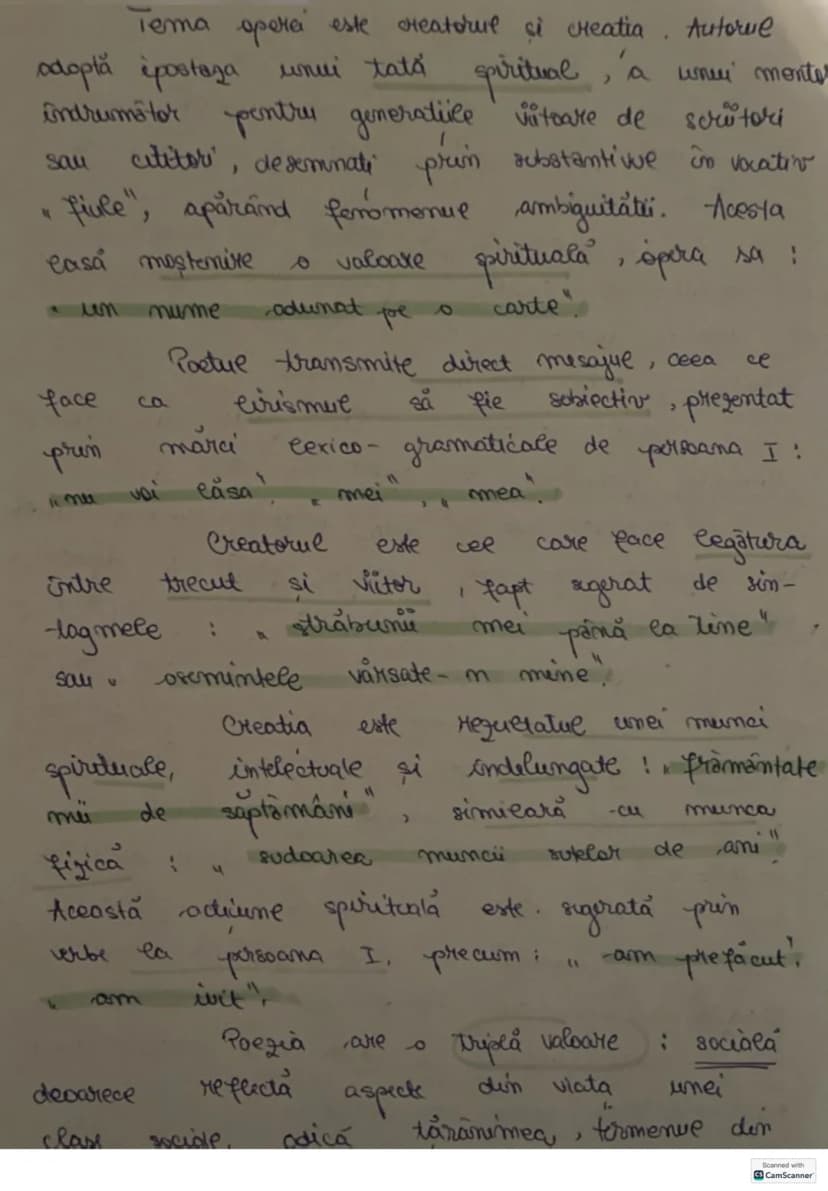 Tema operei este creatorul și creația. Autorul
adoptă ipostaza unui tată spiritual, a unui mentor
îndrumător pentru generațiile viitoare de scriitori
sau cititori, desemnați prin substantivul în vocativ
„fiule", apărând fenomenul ambiguității. Acesta
lasă moștenire o valoare spirituală, opera sa:
„un nume adunat pe o carte".
Poetul transmite direct mesajul, ceea ce
face ca lirismul să fie sobiectiv, prezentat
prin mărci lexico-gramaticale de persoana I:
„nu voi lăsa", „mei", „mea".
Creatorul este cel care face legătura
între trecut și viitor, fapt sugerat de sin-
-tagmele: „străbunii mei până la tine"
sau „osemintele vărsate-n mine".
Creația este rezultatul unei munci
spirituale, intelectuale și îndelungate: „frământate
mii de săptămâni", similară cu munca
fizică: „sudoarea muncii sutelor de ani"
Această acțiune spirituală este sugerată prin
verbe la persoana I, precum: „am prefăcut",
„am ivit".
Poezia are o triplă valoare: socială
deoarece reflectă aspecte din viața unei
clase sociale, adică țărănimea, termenul din
Scanned with
CS CamScanner